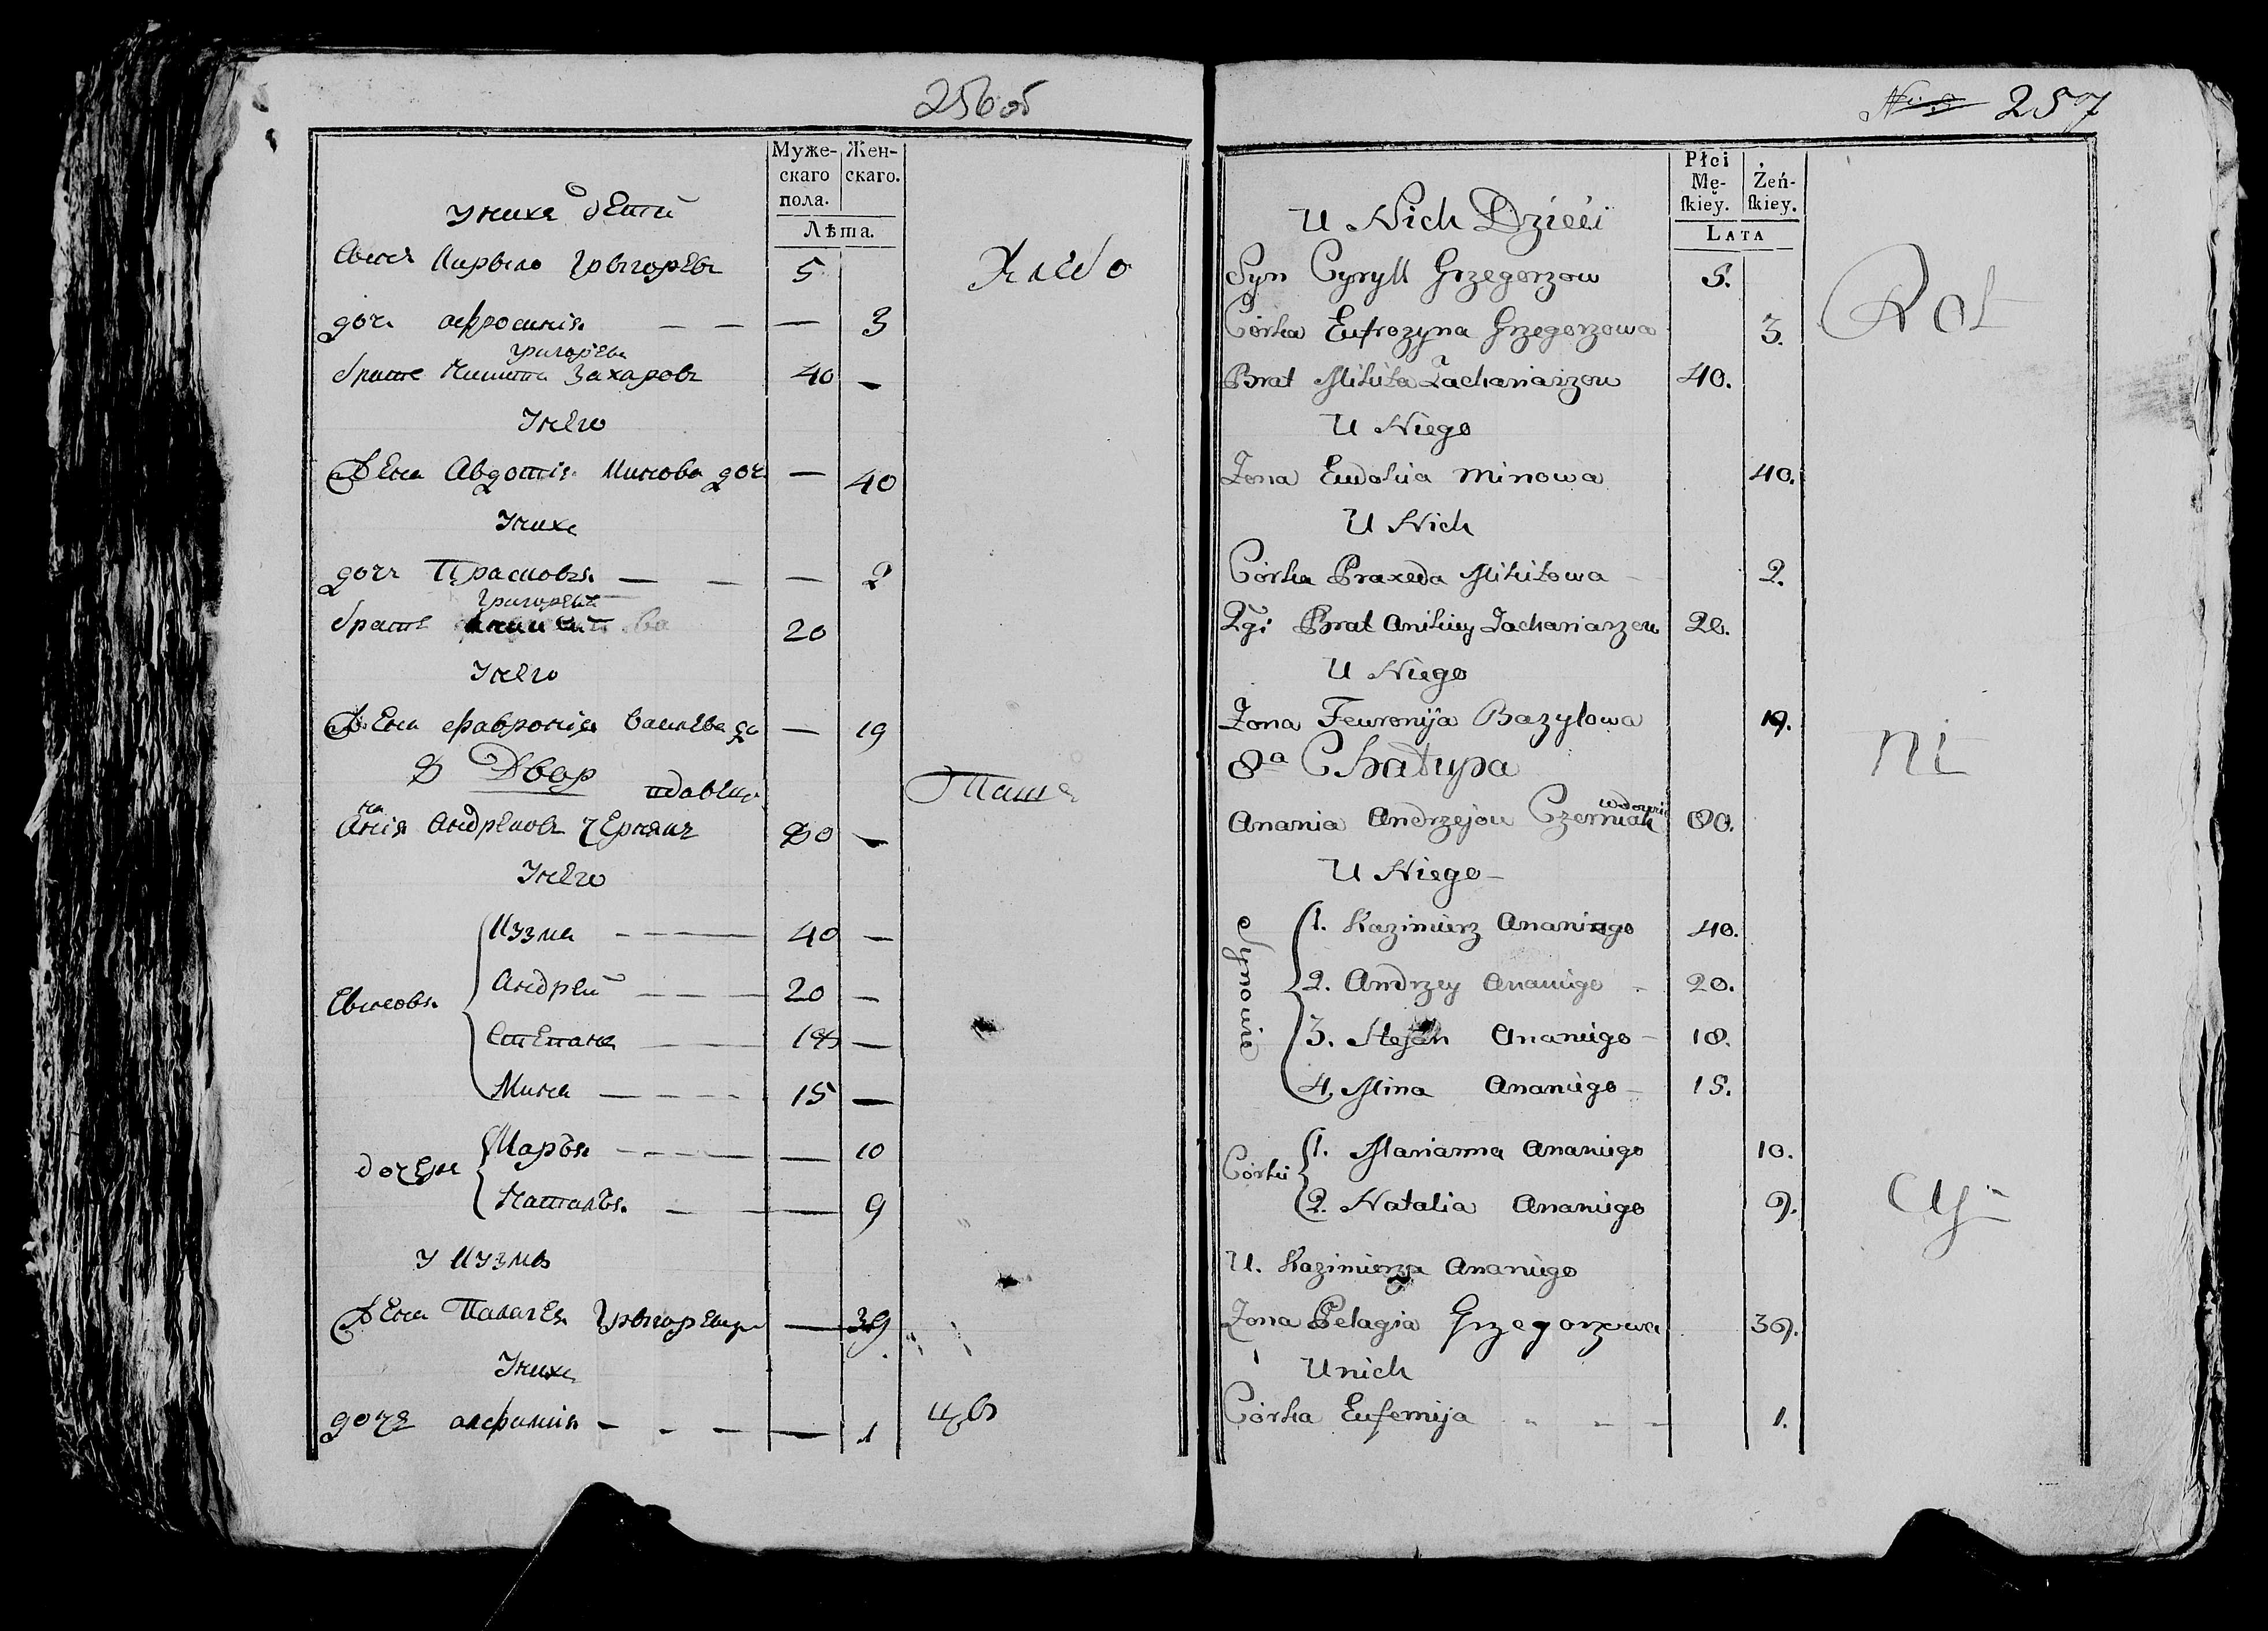 256 об
Муже-
скаго
пола.
Жен-
скаго.
Лѣта.
У нихъ дети
Сынъ Кирыло Грыгорьевъ 5
Хлебо
доч афросиния — — — 3
Григорьевъ
братъ Никита Захаровъ 40 —
У него
Жена Авдотия Минова доч — 40
У нихъ
доч Прасковья — — — 2
Григорьевъ
братъ 20
У него
Жена Фаврония Василева до — 19
8 Двор
вдовец
паше
на
Анія Андреиовъ Чернякъ 80 —
У него
Сыновья
Кузма — — — 40 —
Андрей — — — 20 —
Степанъ — — — 18 —
Мина — — — — 15 —
дочери
Маръя — — — — — 10
Наталъя — — — 9
У Кузмы
Жена Палагея Грыгорева — 39
У нихъ
дочъ алфимия — — — — 1
цы
257
Płci
Mę-
skiey.
Żeń-
skiey.
LATA
U Nich Dzieci
Syn Cyryll Grzegorzow 5.
Rol
Córka Eufrozyna Grzegorzowa 3.
Brat Mikita Zachariarzow 40.
U Niego
Zona Eudokia Minowa 40.
U Nich
Córka Praxeda Mikitowa — 2.
2gi Brat Anikiey Zachariarzow 20.
U Niego
Zona Fewronija Bazylowa 19.
ni
8a Chałupa
wdowiec
Anania Andrzejow Czerniak 80.
U Niego —
Synowie
1. Kazimierz Ananiego 40.
2. Andrzey Ananiego - 20.
3. Stefan Ananiego — 18.
4. Mina Ananiego — 15.
Córki
1. Marianna Ananiego 10.
2. Natalia Ananiego 9.
cy
U. Kazimierza Ananiego
Zona Pelagia Grzegorzowa 39.
U nich
Córka Eufemija 1.